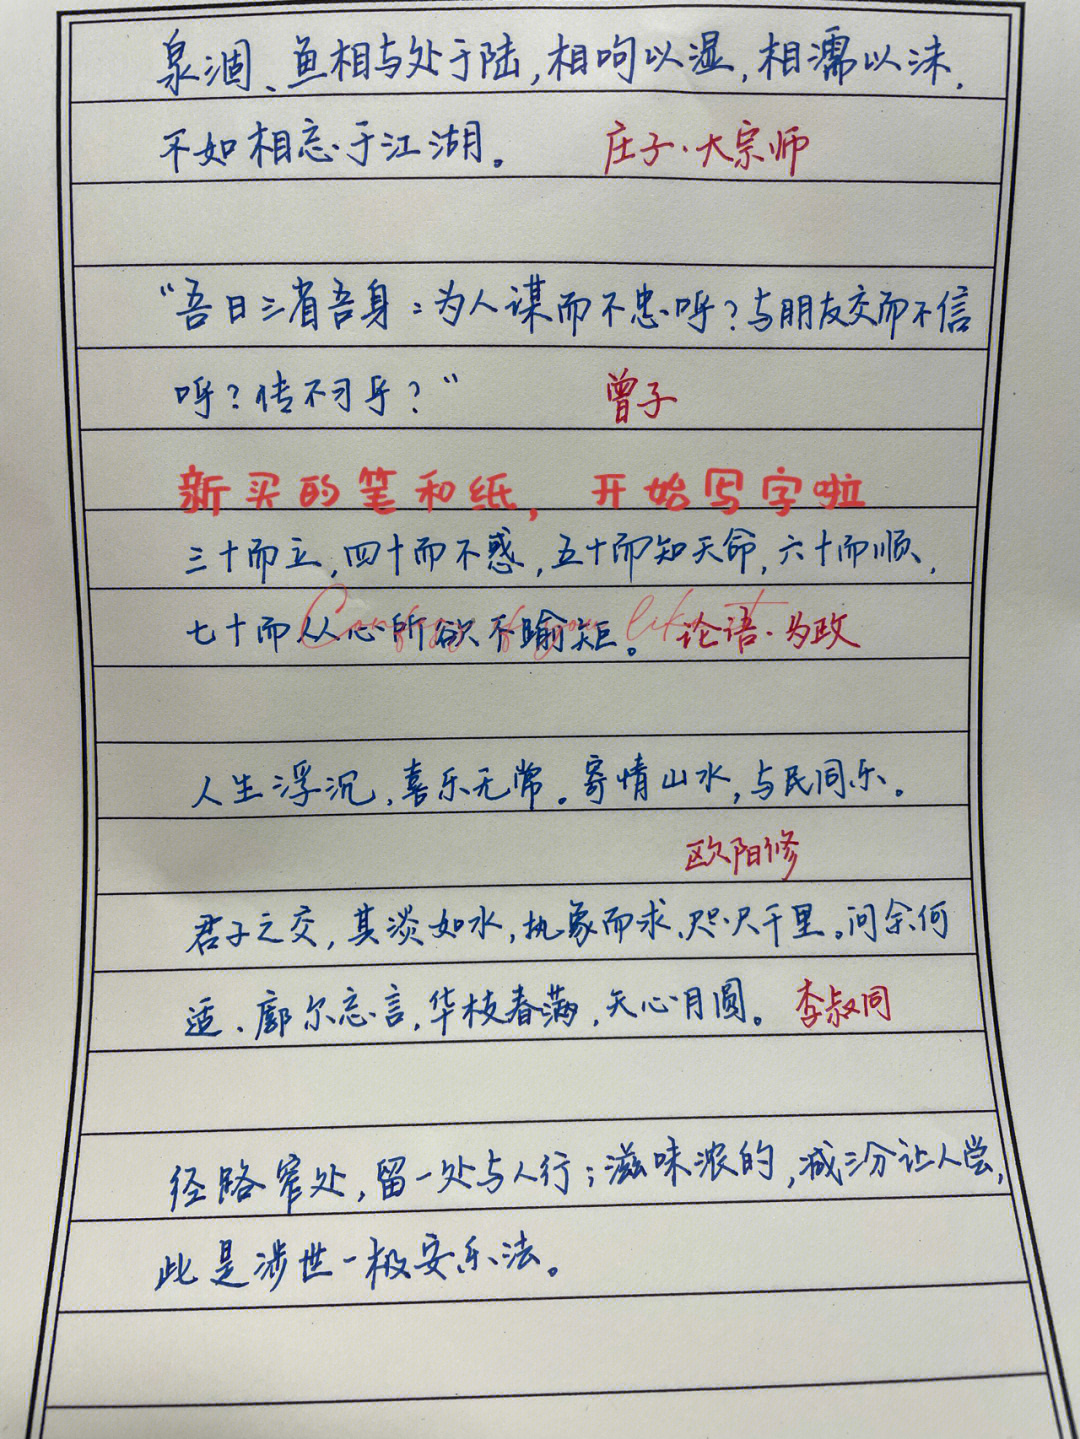 泉涸、鱼相与处于陆,相呴以湿,相濡以沫,
不如相忘于江湖。 庄子·大宗师
“吾日三省吾身:为人谋而不忠呼?与朋友交而不信
呼?传不习乎?” 曾子
新买的笔和纸, 开始写字啦
三十而立,四十而不惑,五十而知天命,六十而顺、
七十而从心所欲不踰矩。 论语·为政
人生浮沉,喜乐无常。寄情山水,与民同乐。
欧阳修
君子之交,其淡如水,执象而求,咫尺千里。问余何
适、廓尔忘言,华枝春满,天心月圆。 李叔同
径路窄处,留一处与人行;滋味浓的,减三分让人尝,
此是涉世一极安乐法。